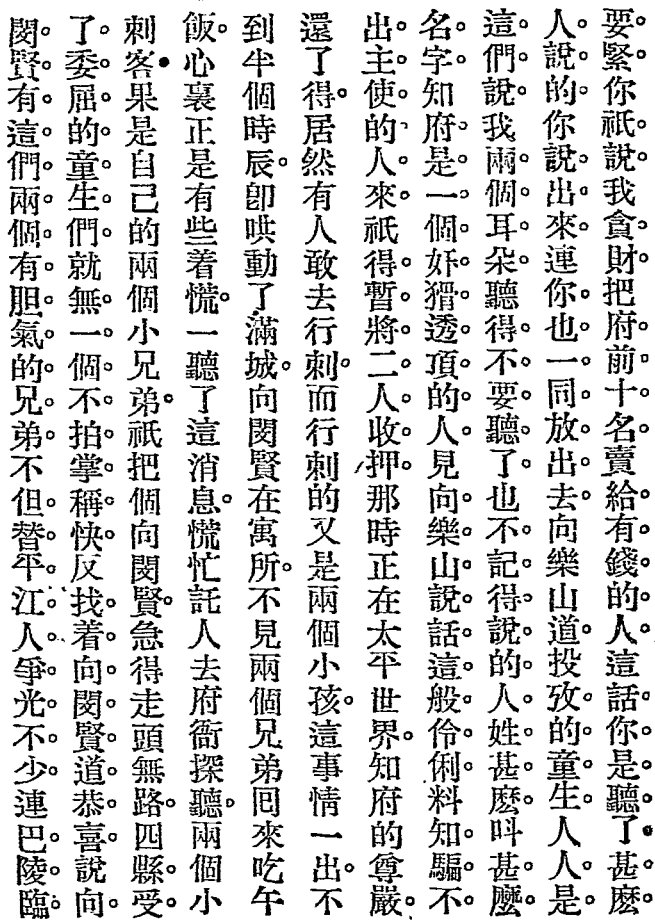 要。緊。你祇說我貪。財。把府前。十。名。賣。給。有。錢。的。人。這話你。是。聽。了。甚。麽。
人。說。的。你說。出。來。連你。也。一。同。放。出。去。向樂山道。投。攷。的。童。生。人。人。是。
這。們。說。我兩。個。耳。朵。聽。得。不。要。聽。了。也。不。記。得。說。的。人。姓。甚。麽。呌。甚。麽。
名。字。知府。是。一。個。奸。猾。透。頂。的。人。見向。樂。山。說。話。這。般。伶。俐。料知。騙。不。
出。主。使。的。人。來。祇得。暫。將。二。人。收。押。那時正在太平世界。知府的尊嚴。
還了得。居然有人敢去行刺。而行刺的又是兩個小孩。這事情一出。不
到半個時辰。卽哄動了滿城。向閔賢在寓所。不見兩個兄弟囘來吃午
飯。心裏正是有些着慌。一聽了這消息。慌忙託人去府衙探聽。兩個小
刺客。果是自己的兩個小兄弟。祇把個向閔賢。急得走頭無路。四縣。受。
了。委。屈。的。童。生。們。就。無。一。個。不。拍。掌。稱。快。反。找。着。向。閔。賢。道。恭。喜。說。向。
閔。賢。有。這。們。兩。個。有。胆。氣。的。兄。弟。不。但。替。平。江。人。爭。光。不。少。連。巴。陵。臨。